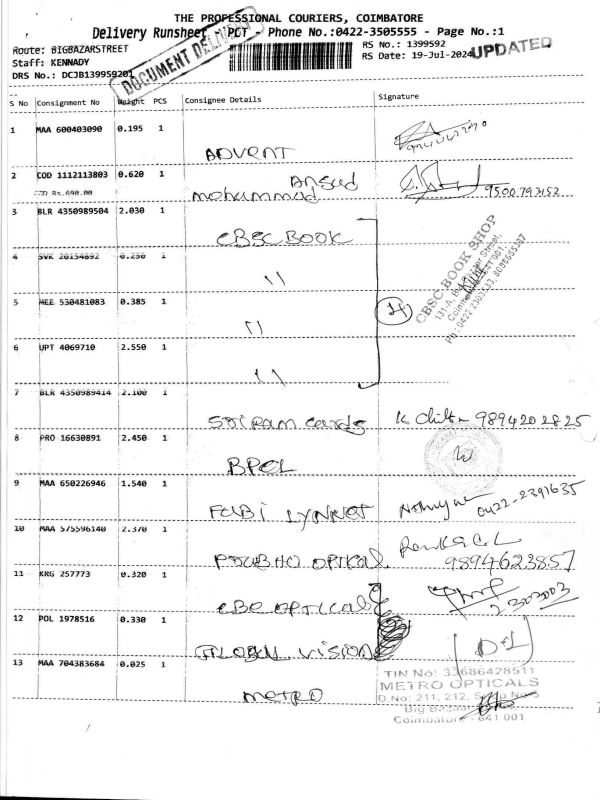 THE PROFESSIONAL COURIERS, COIMBATORE
Delivery Runsheet PCT - Phone No.:0422-3505555 - Page No.:1
Route: BIGBAZARSTREET
RS No.: 1399592
Staff: KENNADY
RS Date: 19-Jul-2024
UPDATED
DRS No.: DCJB139959201
DOCUMENT DELIVERY
S No Consignment No Weight PCS Consignee Details Signature
1 MAA 600403090 0.195 1 ADVENT
2 COD 1112113803 0.620 1 Mohammad Ansad 9500793152
COD Rs.690.00
3 BLR 4350989504 2.030 1 CBSC BOOK
4 SVK 20154892 0.250 1 11
5 MEE 530481083 0.385 1 11
6 UPT 4069710 2.550 1 11
CBSC BOOK SHOP
7 BLR 4350989414 2.100 1 Sri Ram Cards 9894202825
8 PRO 16630891 2.450 1 BPCL
9 MAA 650226946 1.540 1 FABI LYNNOT 0422-2391635
10 MAA 575596140 2.370 1 OPTICAL 9894623857
11 KRG 257773 0.320 1 CBE OPTICAL 2303003
12 POL 1978516 0.330 1 GLOBAL VISION
13 MAA 704383684 0.025 1 METRO
TIN No: 33686428511
METRO OPTICALS
D.No: 211, 212,
Big
Coimbatore - 641 001